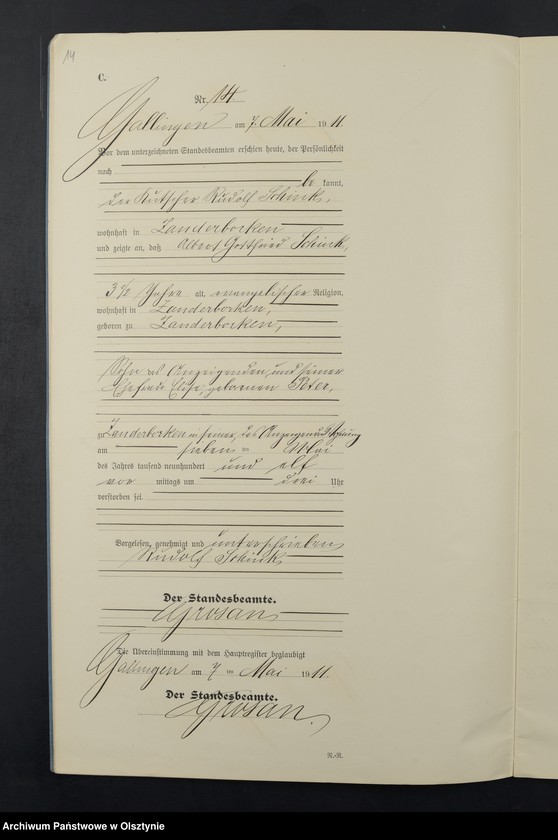 14
C.
Nr. 14.
Gallingen am 7. Mai 19 11.
Vor dem unterzeichneten Standesbeamten erschien heute, der Persönlichkeit
nach
be kannt,
der Kutscher Rudolf Schink,
wohnhaft in Zanderborken
und zeigte an, daß Albert Gottfried Schink,
3 1/2 Jahre alt, evangelischer Religion,
wohnhaft in Zanderborken,
geboren zu Zanderborken,
Sohn des Anzeigenden und seiner
Ehefrau Elise, gebornen Peter,
zu Zanderborken in seiner, des Anzeigenden Wohnung
am sieben ten Mai
des Jahres tausend neunhundert und elf
vor mittags um drei Uhr
verstorben sei.
Vorgelesen, genehmigt und unterschrieben
Rudolf Schink
Der Standesbeamte.
Grosan
Die Übereinstimmung mit dem Hauptregister beglaubigt
Gallingen am 7 ten Mai 19 11.
Der Standesbeamte.
Grosan.
R.-R.
Archiwum Państwowe w Olsztynie